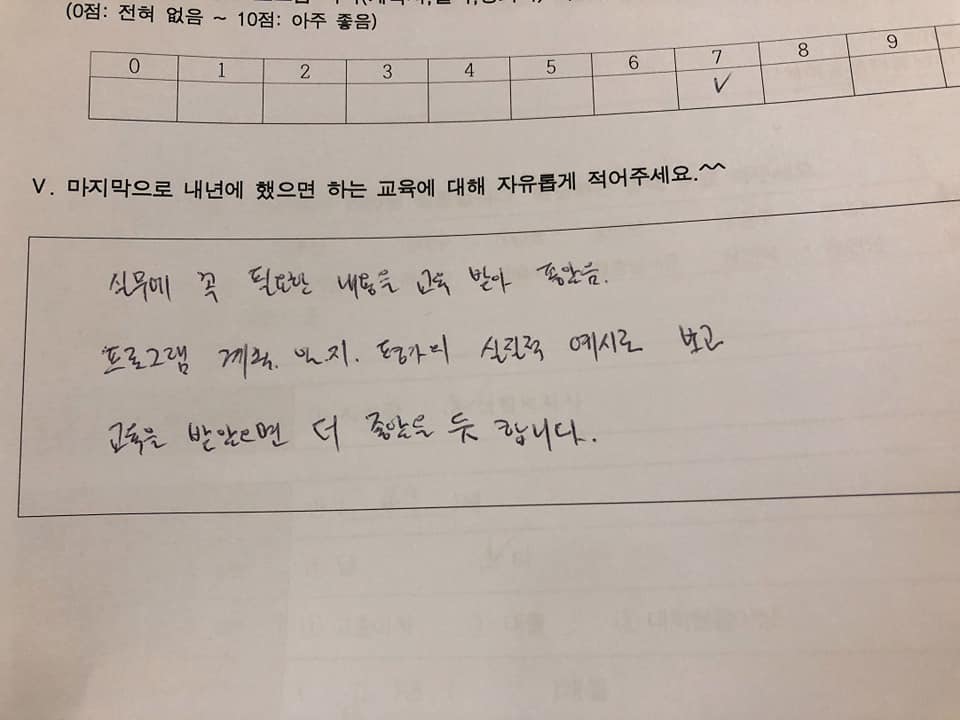 (0점: 전혀 없음 ~ 10점: 아주 좋음)
0 1 2 3 4 5 6 7 8 9
V
V. 마지막으로 내년에 했으면 하는 교육에 대해 자유롭게 적어주세요.^^
실무에 꼭 필요한 내용을 교육 받아 좋았음.
프로그램 계획. 일.지. 평가의 실질적 예시로 보고
교육을 받았으면 더 좋았을 듯 합니다.